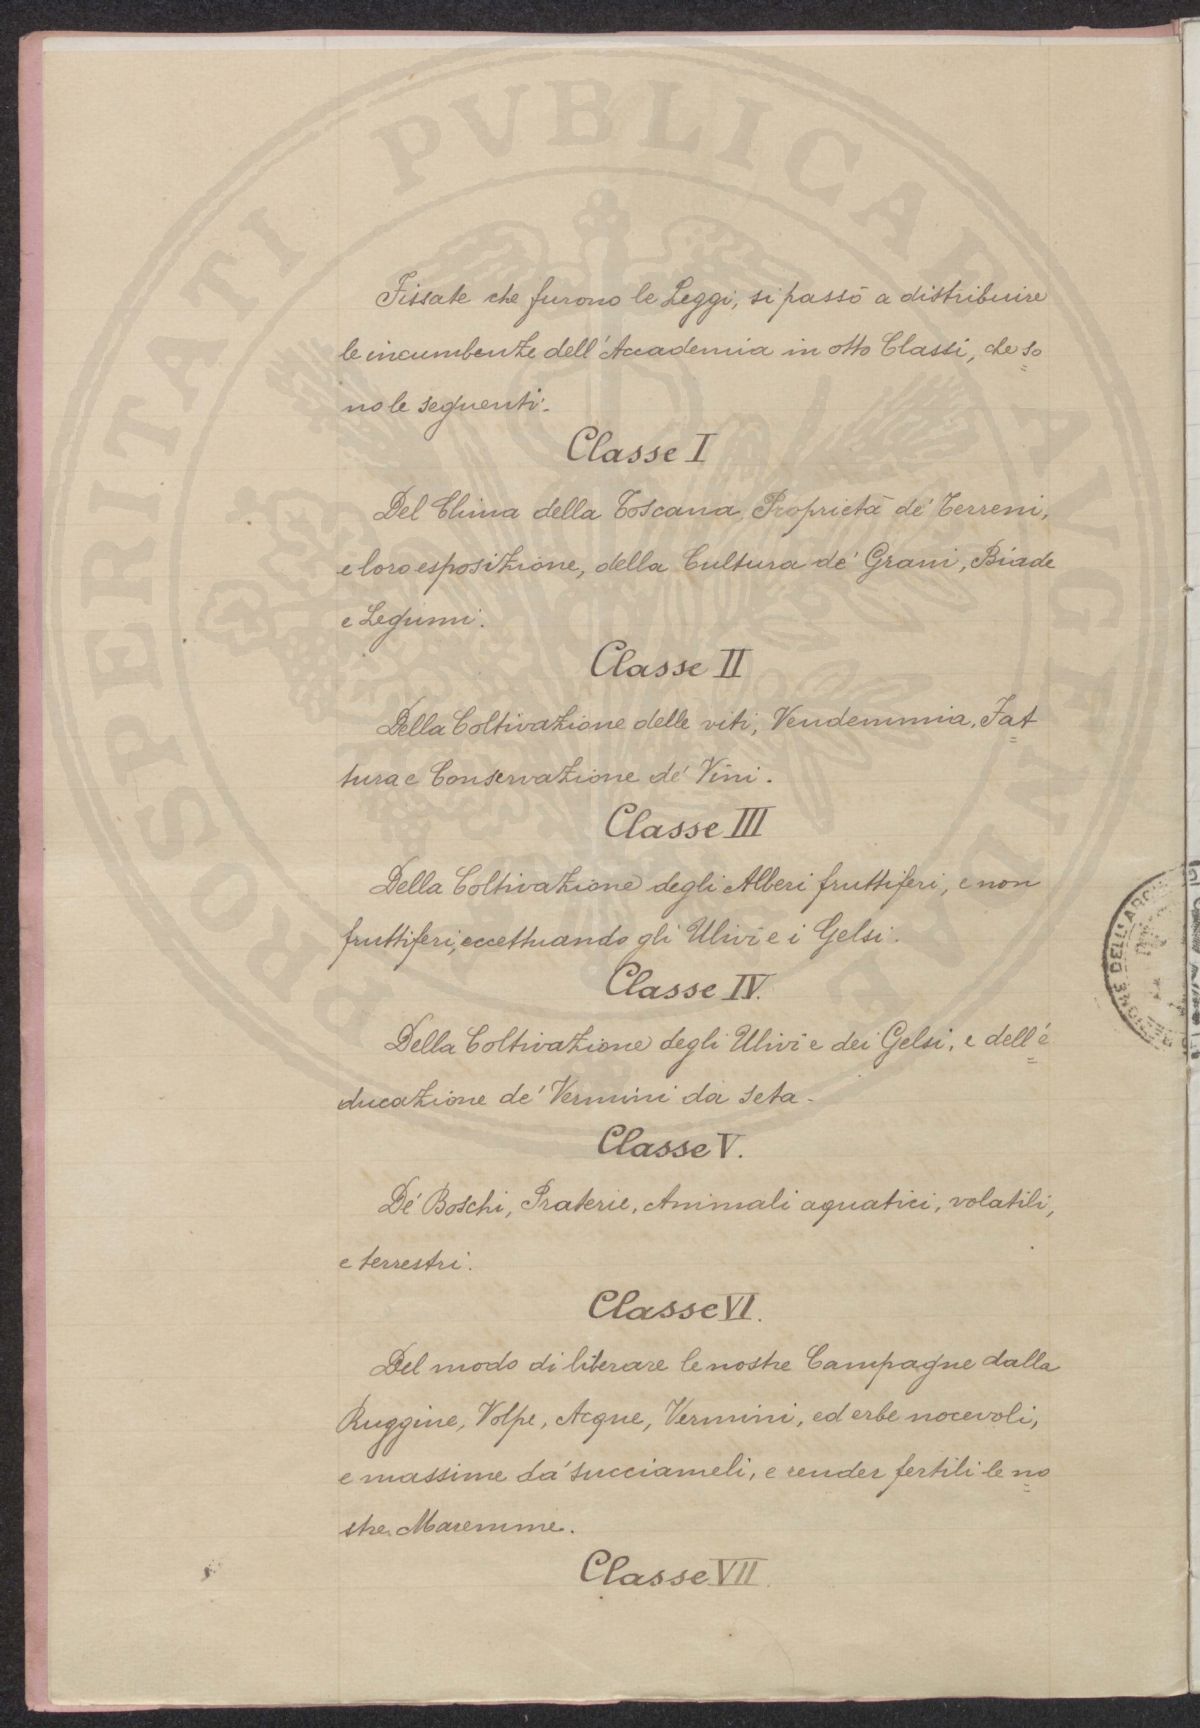 Fissate che furono le Leggi, si passò a distribuire
le incumbenze dell'Accademia in otto Classi, che so=
no le seguenti:
Classe I
Del Clima della Toscana, Proprietà de' Terreni,
e loro esposizione, della Cultura de' Grani, Biade
e Legumi.
Classe II
Della Coltivazione delle viti, Vendemmia, Fat=
tura e Conservazione de' Vini.
Classe III
Della Coltivazione degli Alberi fruttiferi, e non
fruttiferi, eccettuando gli Ulivi e i Gelsi.
Classe IV.
Della Coltivazione degli Ulivi e dei Gelsi, e dell'é=
ducazione de' Vermini da seta.
Classe V.
De' Boschi, Praterie, Animali aquatici, volatili,
e terrestri.
Classe VI.
Del modo di liberare le nostre Campagne dalla
Ruggine, Volpe, Acque, Vermini, ed erbe nocevoli,
e massime da' succiameli, e render fertili le no=
stre Maremme.
Classe VII.
PROSPERITATI PVBLICAE AVGENDAE
DELL'ARCH